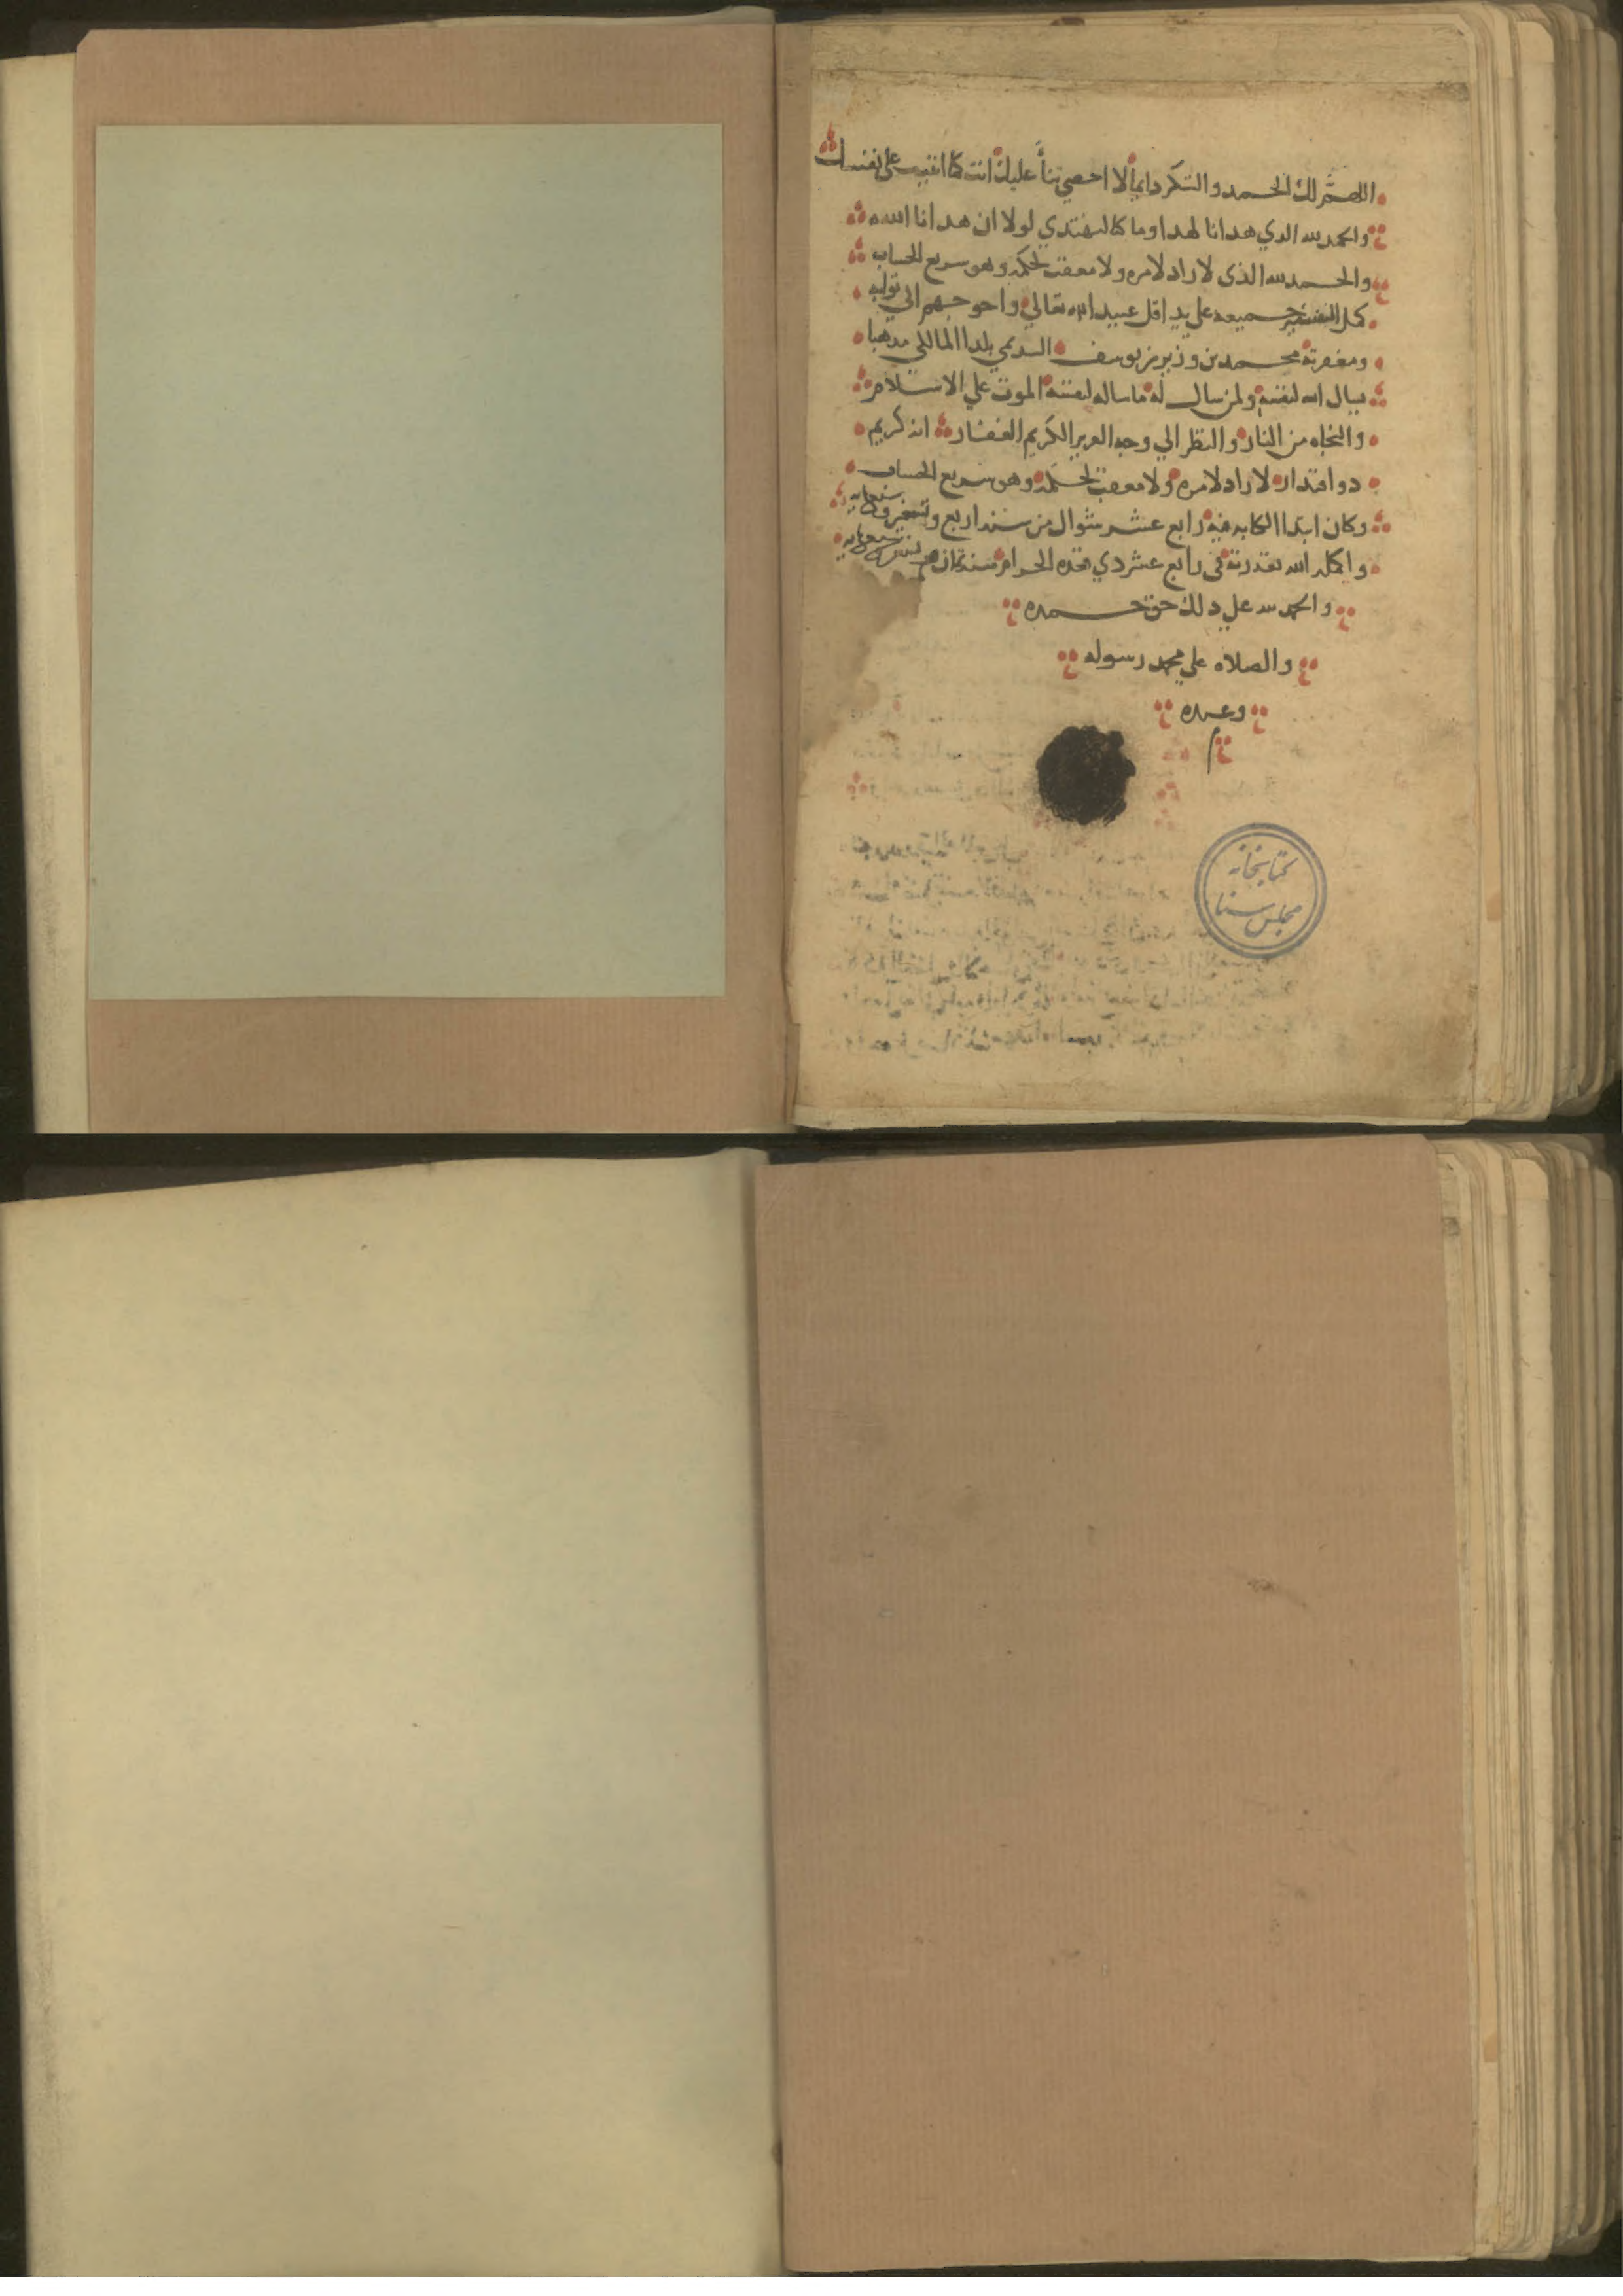 اللهم لك الحمد والشكر دايما لا احصي ثناً عليك انت كما اثنيت على نفسك
والحمد لله الدي هدانا لهدا وما كنا لنهتدي لولا ان هدانا الله
والحمد لله الذى لا راد لامره ولا معقب لحكمه وهو سريع الحساب
كمل جميعه على يد اقل عبيد الله تعالى واحوجهم الي ثوابه
ومغفرته محمد بن وزير بن يوسف بلدا المالكي مدهبا
يسال الله لنفسه ولمن سال له ما ساله لنفسه الموت علي الاسلام
والنجاه من النار والنظر الي وجه العزيز الكريم الغفار انه كريم
دو اقتدار لا راد لامره ولا معقب لحكمه وهو سريع الحساب
وكان ابتدا الكتابه فيه رابع عشر شوال من سنه اربع
واكمله الله بقدرته في رابع عشر دي قعده الحرام سنه
والحمد لله علي دلك حق حمده
والصلاه علي محمد رسوله
وعبده
م
كتابخانه
مجلس سنا